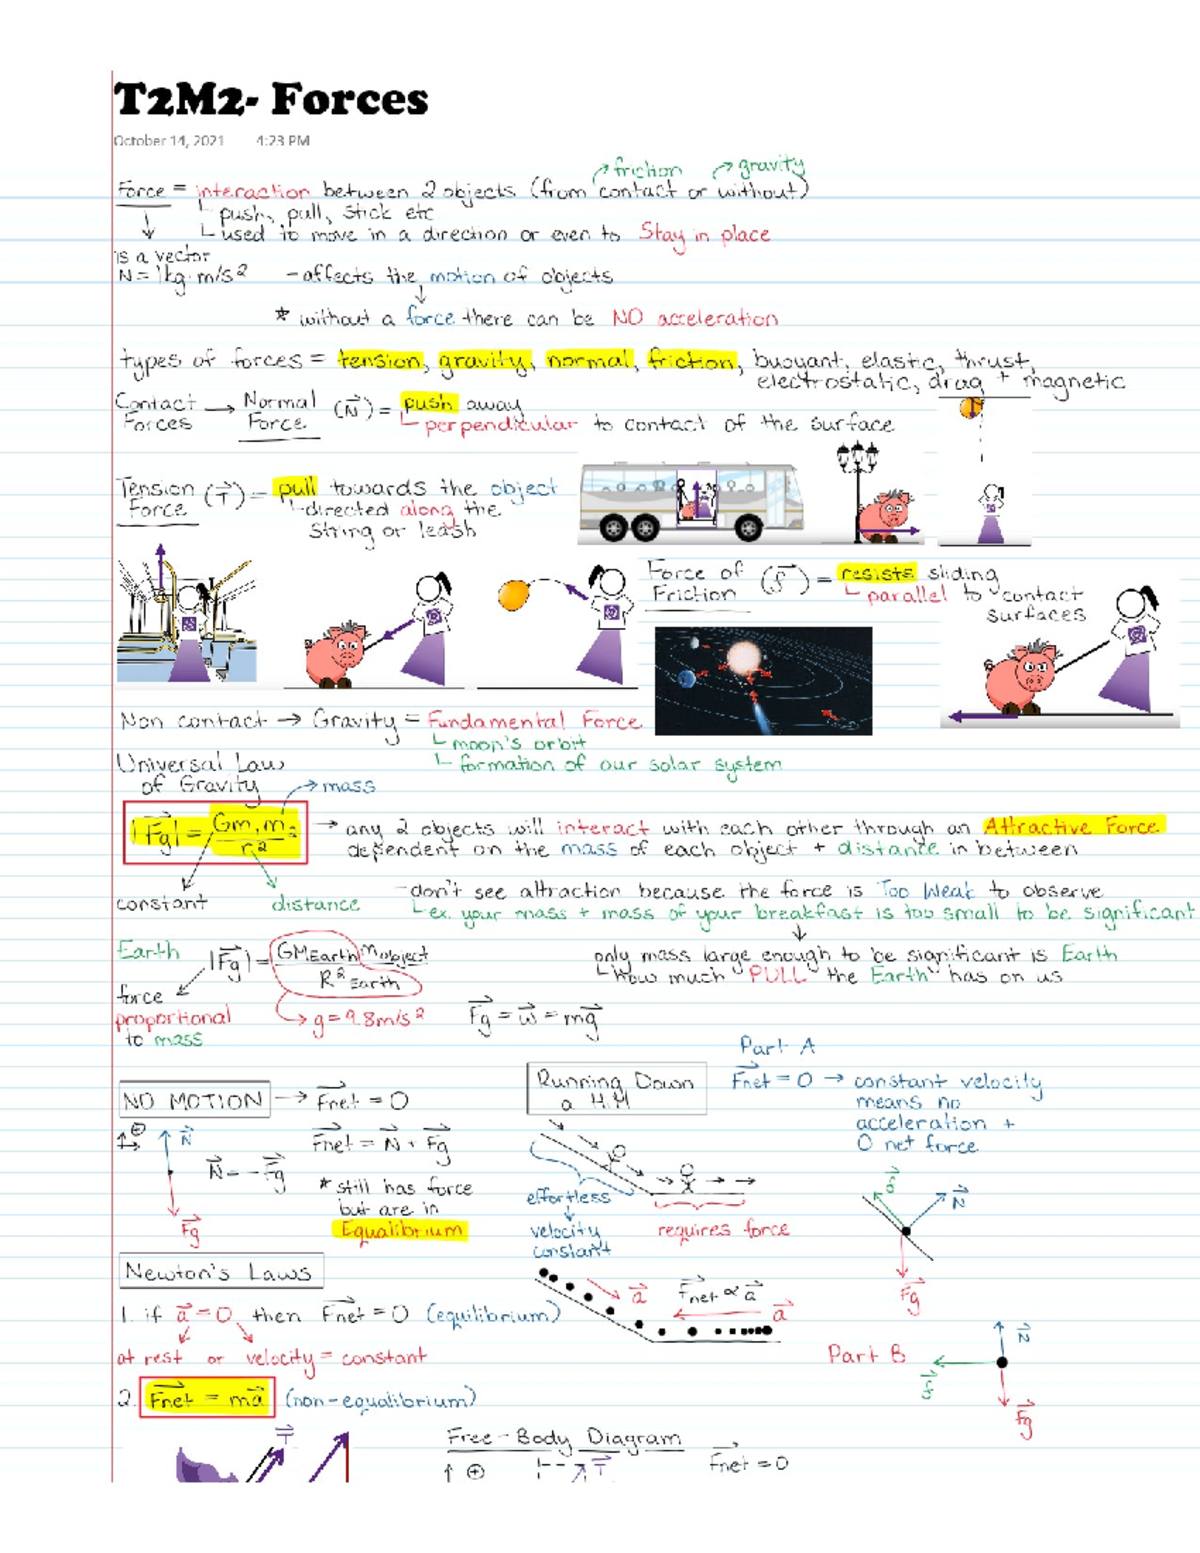 T2M2- Forces
October 14, 2021 4:23 PM
friction gravity
Force = interaction between 2 objects (from contact or without)
push, pull, stick etc
used to move in a direction or even to Stay in place
is a vector
N = 1kg·m/s² - affects the motion of objects
* without a force there can be NO acceleration
types of forces = tension, gravity, normal, friction, buoyant, elastic, thrust,
electrostatic, drag + magnetic
Contact Forces → Normal Force (N⃗) = push away
perpendicular to contact of the surface
Tension Force (T⃗) = pull towards the object
directed along the
string or leash
Force of Friction (f⃗) = resists sliding
parallel to contact
surfaces
Non contact → Gravity = Fundamental Force
moon's orbit
formation of our solar system
Universal Law
of Gravity → mass
|F⃗g| = Gm₁m₂/r² → any 2 objects will interact with each other through an Attractive Force
dependent on the mass of each object + distance in between
constant distance
- don't see attraction because the force is Too Weak to observe
ex. your mass + mass of your breakfast is too small to be significant
only mass large enough to be significant is Earth
How much PULL the Earth has on us
Earth |F⃗g| = GMEarth mobject/R²Earth
force
proportional
to mass
g = 9.8m/s² F⃗g = w⃗ = mg⃗
Part A
F⃗net = 0 → constant velocity
means no
acceleration +
0 net force
Running Down
a Hill
NO MOTION → F⃗net = 0
⊕ N⃗ F⃗net = N⃗ + F⃗g
N⃗ = -F⃗g
F⃗g
* still has force
but are in
Equalibrium
effortless
velocity
constant
requires force
f⃗ N⃗
F⃗g
Newton's Laws
1. if a⃗ = 0, then F⃗net = 0 (equilibrium)
at rest or velocity = constant
a⃗ F⃗net ∝ a⃗ a⃗
Part B
N⃗
f⃗
F⃗g
2. F⃗net = ma⃗ (non-equalibrium)
T⃗
Free-Body Diagram
⊕ T⃗ F⃗net = 0